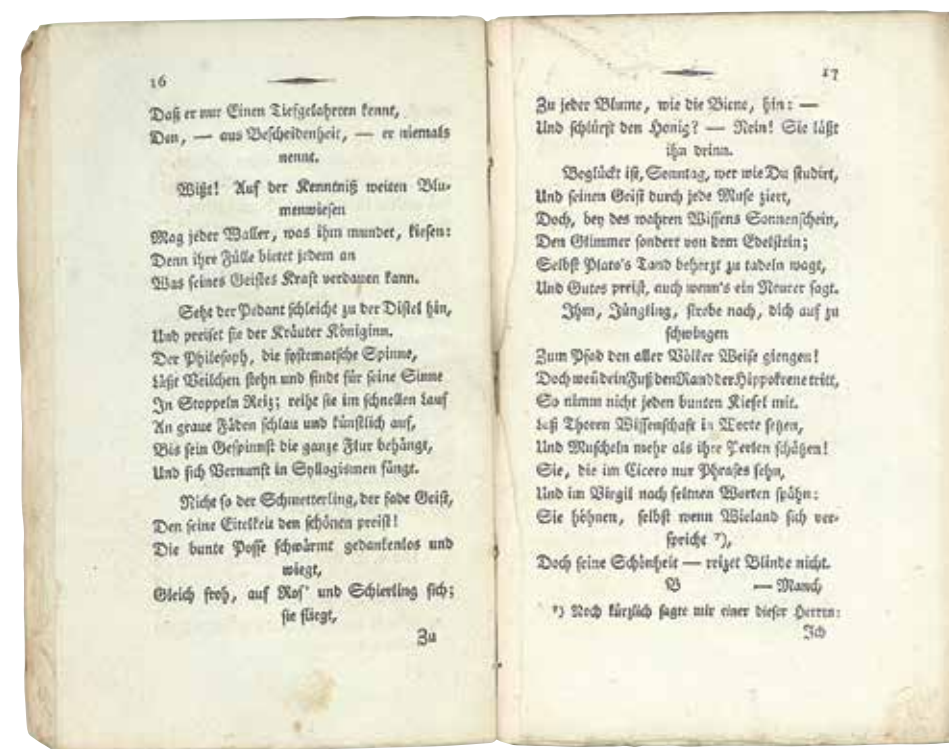 16
Daß er nur Einen Tiefgelahrten kennt,
Den, — aus Bescheidenheit, — er niemals
nennt.
Wißt! Auf der Kenntniß weiten Blu-
menwiesen
Mag jeder Waller, was ihm mundet, kiesen:
Denn ihre Fülle bietet jedem an
Was seines Geistes Kraft verdauen kann.
Seht der Pedant schleicht zu der Distel hin,
Und preiset sie der Kräuter Königinn.
Der Philosoph, die systematsche Spinne,
Läßt Veilchen stehn und findt für seine Sinne
In Stoppeln Reiz; reiht sie im schnellen Lauf
An graue Fäden schlau und künstlich auf,
Bis sein Gespinnst die ganze Flur behängt,
Und sich Vernunft in Syllogismen fängt.
Nicht so der Schmetterling, der fade Geist,
Den seine Eitelkeit den schönen preist!
Die bunte Posse schwärmt gedankenlos und
wiegt,
Gleich froh, auf Ros' und Schierling sich;
sie fliegt,
Zu
17
Zu jeder Blume, wie die Biene, hin: —
Und schlürft den Honig? — Nein! Sie läßt
ihn drinn.
Beglückt ist, Sonntag, wer wie Du studirt,
Und seinen Geist durch jede Muse ziert,
Doch, bey des wahren Wissens Sonnenschein,
Den Glimmer sondert von dem Edelstein;
Selbst Plato's Tand beherzt zu tadeln wagt,
Und Gutes preist, auch wenn's ein Neurer sagt.
Ihm, Jüngling, strebe nach, dich auf zu
schwingen
Zum Pfad den aller Völker Weise giengen!
Doch wen̄ dein Fuß den Rand der Hippokrene tritt,
So nimm nicht jeden bunten Kiesel mit.
Laß Thoren Wissenschaft in Worte setzen,
Und Muscheln mehr als ihre Perlen schätzen!
Sie, die im Cicero nur Phrases sehn,
Und im Virgil nach seltnen Worten spähn:
Sie höhnen, selbst wenn Wieland sich ver-
spricht *),
Doch seine Schönheit — reizet Blinde nicht.
B — Manch
*) Noch kürzlich sagte mir einer dieser Herren:
Ich